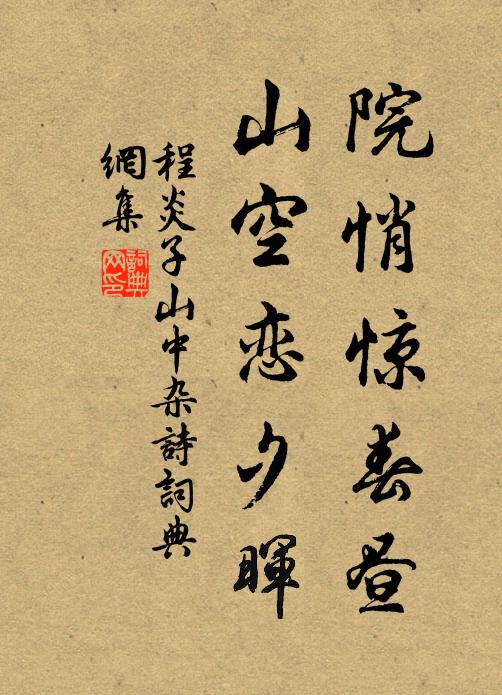 院悄惊春昼
山空恋夕暉
程炎子山中杂詩詞典
網集
詞典
网印